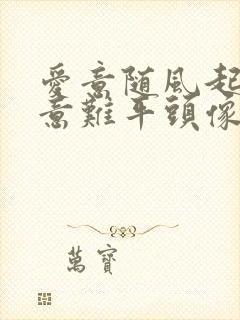 愛意随風起
意難平頭像
萬寶